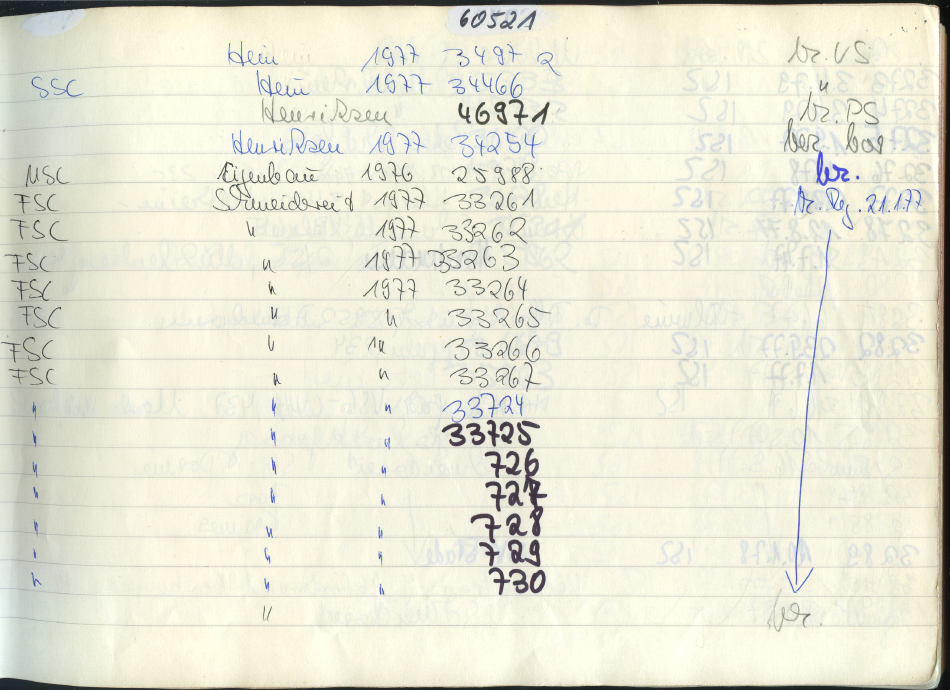 60521
Hein 1977 34972 br. VS
SSC Hein 1977 34466 "
Henriksen 46971 br. PS
Henriksen 1977 34254 ber. bar
MSC Eigenbau 1976 25988 br.
FSC Schneidereit 1977 33261 br. Reg. 21.1.77
FSC " 1977 33262
FSC " 1977 33263
FSC " 1977 33264
FSC " " 33265
FSC " " 33266
FSC " " 33267
" " " 33724
" " " 33725
" " " 726
" " " 727
" " " 728
" " " 729
" " " 730
" br.